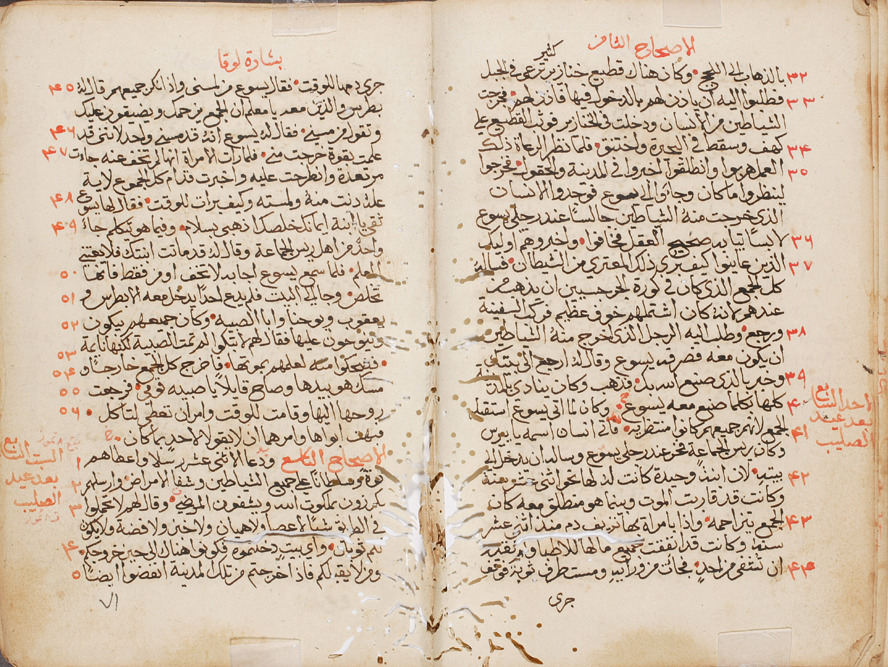 الاصحاح الثامن
كثير
٣٢ بالذهاب الى اللجج • وكان هناك قطيع خنازير ترعى في الجبل
٣٣ فطلبوا اليه ان ياذن لهم بالدخول فيها فاذن لهم • فخرجت
الشياطين من الانسان ودخلت في الخنازير فوثب القطيع على
٣٤ كهف وسقط في البحيرة واختنق • فلما نظر الرعاة ذلك
٣٥ العمل هربوا وانطلقوا اخبروا في المدينة والحقول • فخرجوا
لينظروا ما كان وجاوا الى يسوع فوجدوا الانسان
الذي خرجت منه الشياطين جالسا عند رجلي يسوع
٣٦ لابسا ثيابه صحيح العقل فخافوا • واخبروهم اوليك
٣٧ الذين عاينوا كيف بري ذلك المعتري من الشيطان • فساله
كل الجمع الذي كان في كورة الجرجسيين ان يذهب من
عندهم لانه كان اشتملهم خوف عظيم فركب السفينة
٣٨ ورجع • وطلب اليه الرجل الذي خرج منه الشياطين
ان يكون معه فصرفه يسوع وقال له ارجع الى بيتك
٣٩ وخبر بالذي صنع الله بك • فذهب وكان ينادي في المدينة
٤٠ كلها بكلما صنع معه يسوع • وكان لما اتى يسوع استقبله
٤١ الجمع لانهم جميعهم كانوا منتظريه • فاتى انسان اسمه يابيرس
وكان رييس الجماعة فخر عند رجلي يسوع وساله ان يدخل الى
٤٢ بيته • لان ابنة وحيدة كانت له لها نحو اثنتي عشر سنة
وكانت قد قاربت الموت وبينما هو منطلق معه كان
٤٣ الجمع يتزاحمه • واذا بامراة بها نزيف دم منذ اثني عشر
سنة وكانت قد انفقت جميع مالها للاطبا ولم تقدر
٤٤ ان تشتفي من احد • فجات من ورايه ومست طرف ثوبه فوقف
جرى
الاحد السابع
بعد عيد
الصليب
بشارة لوقا
٤٥ جرى دمها للوقت • فقال يسوع من لمسني واذ انكر جميعهم قال له
بطرس والذين معه يا معلم ان الجمع يزحمك ويضيقون عليك
٤٦ وتقول من لمسني • فقال له يسوع انه قد مسني واحد لانني قد
٤٧ علمت بقوة خرجت مني • فلما رات الامراة انها لم تخف عنه جات
مرتعدة وانطرحت عليه واخبرت قدام كل الجموع لاية
٤٨ علة دنت منه ولمسته وكيف برات للوقت • فقال لها يسوع
٤٩ ثقي يا ابنة ايمانك خلصك اذهبي بسلام • وفيما هو يتكلم جاء
واحد من اهل رييس الجماعة وقال له قد ماتت ابنتك فلا تعني
٥٠ المعلم • فلما سمع يسوع اجابه لا تخف امن فقط فانها
٥١ تخلص • وجا الى البيت فلم يدع احدا يدخل معه الا بطرس و
٥٢ يعقوب ويوحنا وابا الصبية • وكان جميعهم يبكون
وينوحون عليها فقال لهم لا تبكوا لم تمت الصبية لكنها نايمة
٥٣ • فضحكوا منه لعلمهم بموتها • فاخرج كل الجمع خارجا و ٥٤
٥٥ مسك هو بيدها وصاح قايلا يا صبية قومي • فرجعت
٥٦ روحها اليها وقامت للوقت وامر ان تعطى لتاكل •
فبهت ابواها وامرهما ان لا يقولا لاحد بما كان •
الاصحاح التاسع
١ ودعا الاثني عشر رسلا واعطاهم
٢ قوة وسلطانا على جميع الشياطين وشفا الامراض • وارسلهم
٣ يكرزون بملكوت الله ويشفون المرضى • وقال لهم لا تحملوا
في الطريق شيا لا عصا ولا هميان ولا خبز ولا فضة ولا يكون
٤ لكم ثوبان • واي بيت دخلتموه فكونوا هناك الى حين خروجكم •
٥ ومن لا يقبلكم فاذا خرجتم من تلك المدينة انفضوا ايضا
السبت السابع
بعد عيد
الصليب